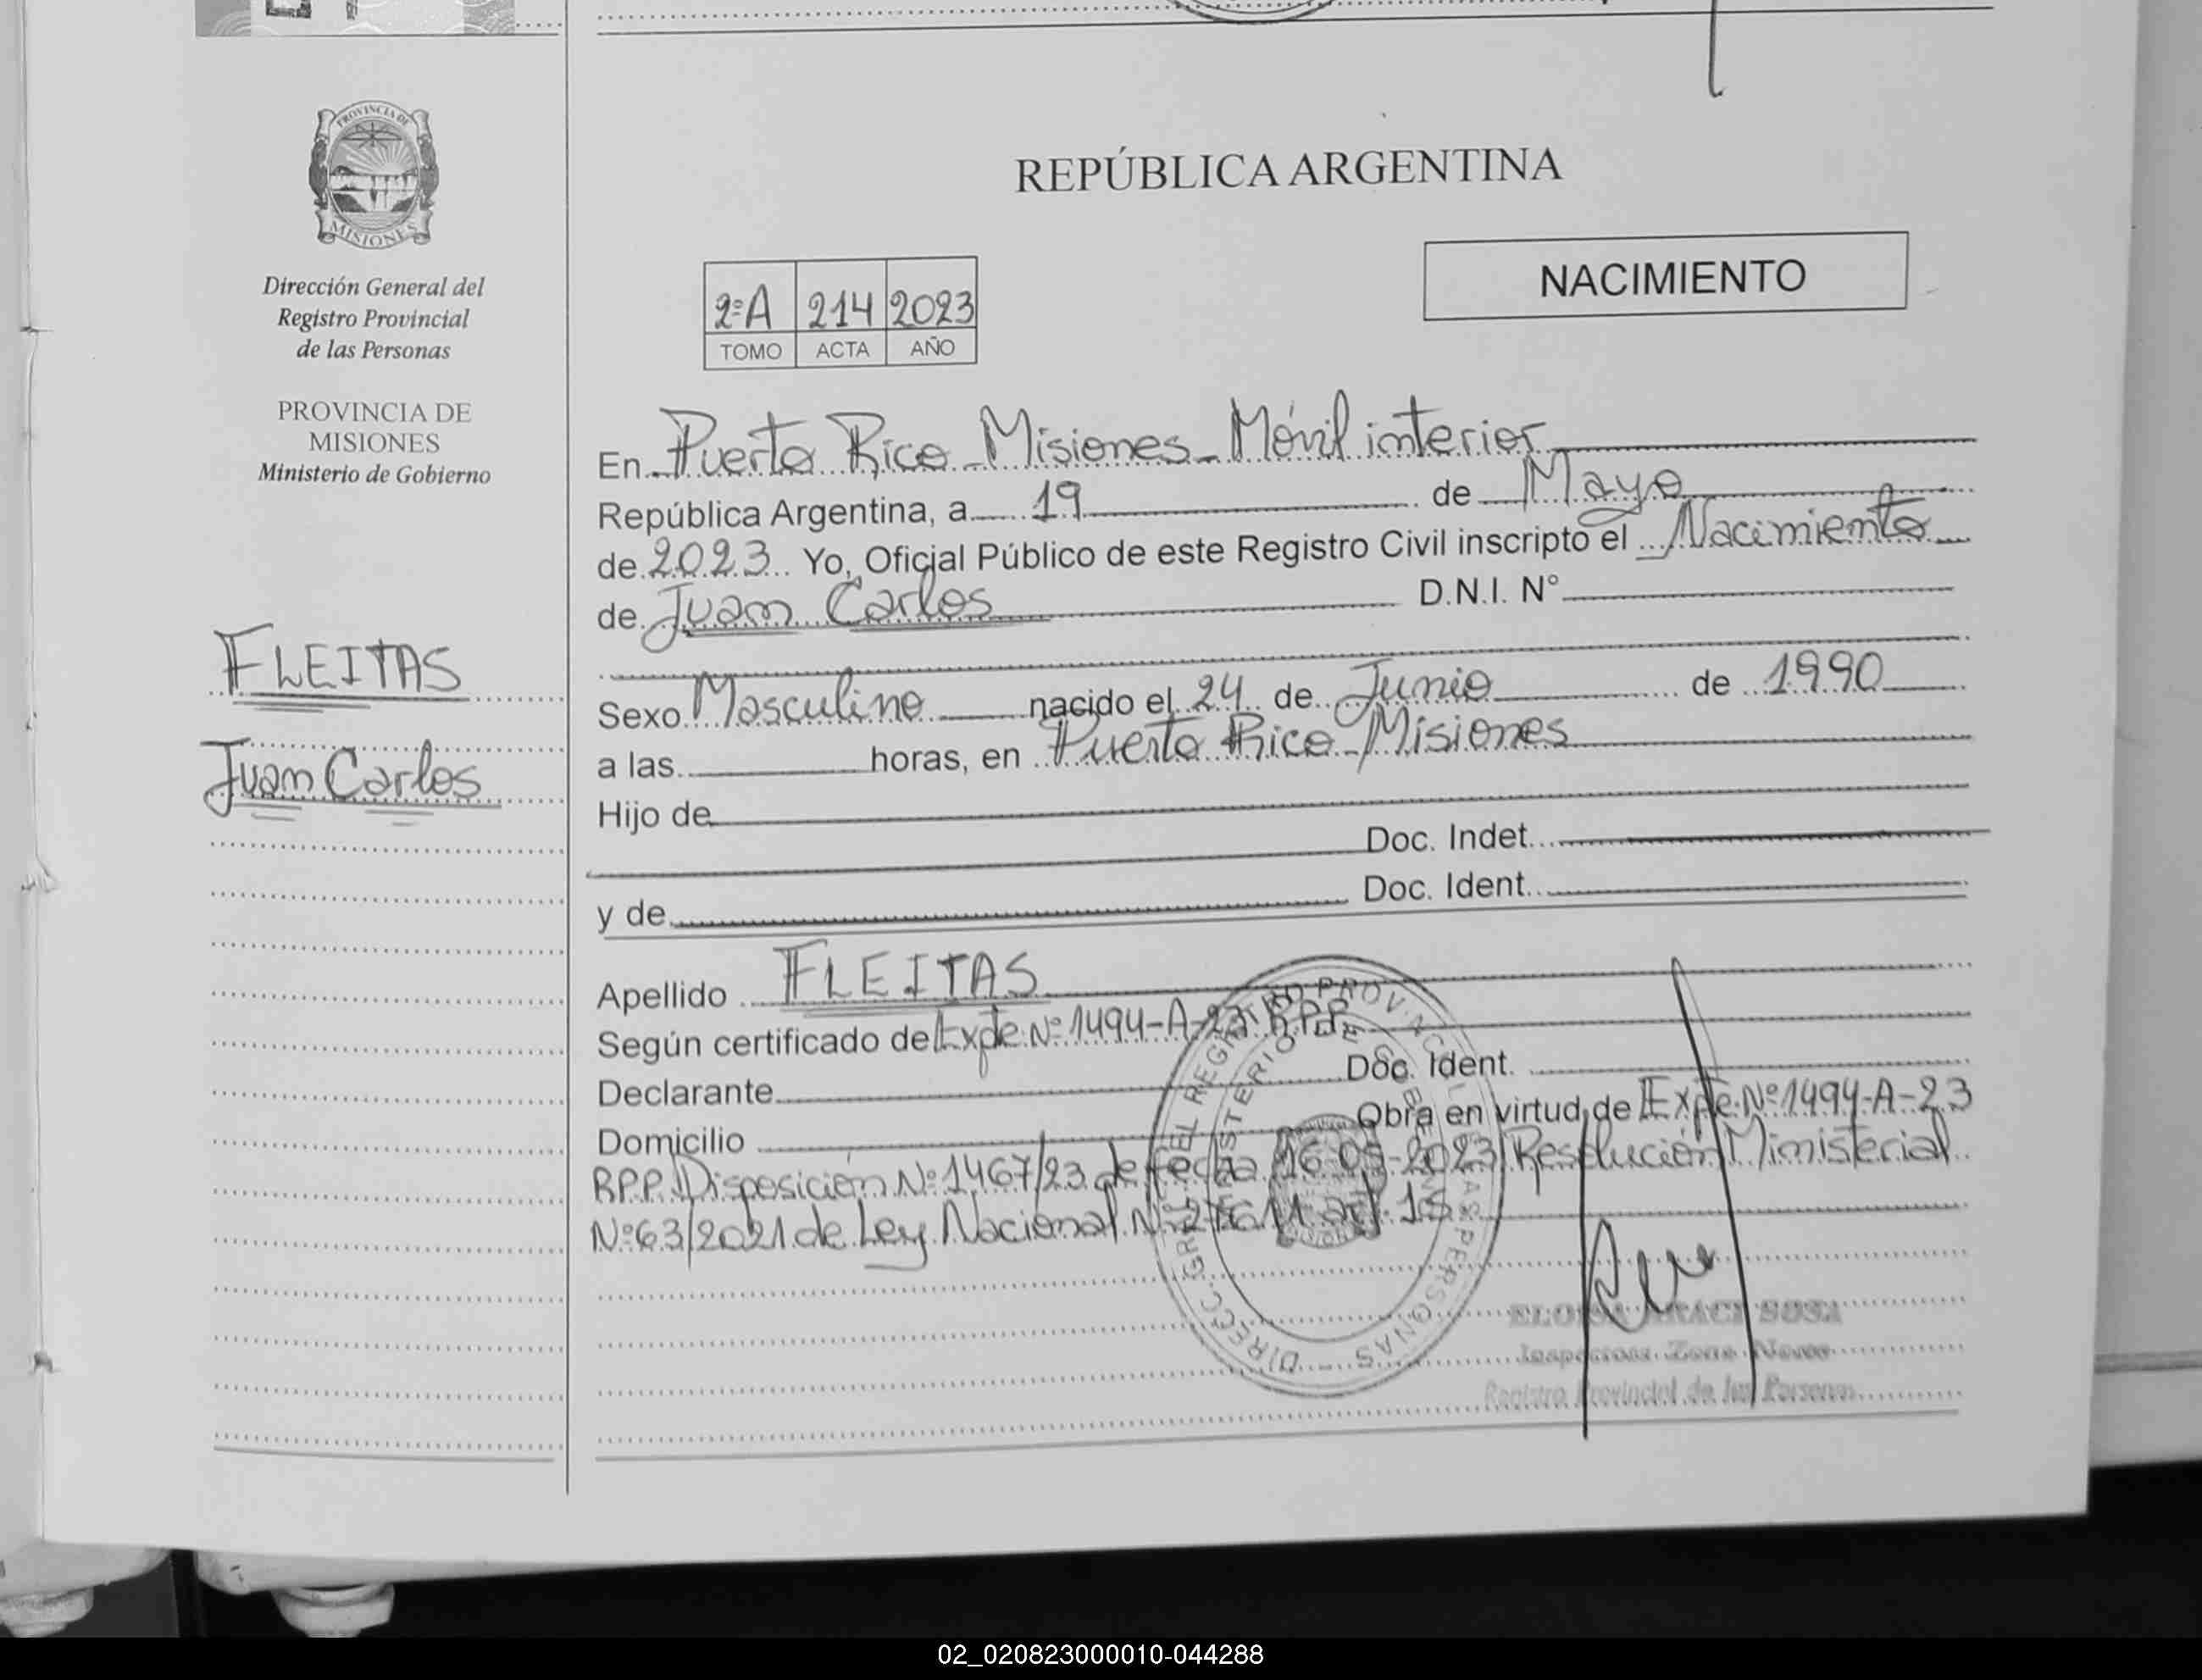 PROVINCIA DE
MISIONES
Dirección General del
Registro Provincial
de las Personas
PROVINCIA DE
MISIONES
Ministerio de Gobierno
FLEITAS
Juan Carlos
REPÚBLICA ARGENTINA
NACIMIENTO
2ºA 214 2023
TOMO ACTA AÑO
En Puerto Rico - Misiones - Móvil interior
República Argentina, a 19 de Mayo
de 2023 Yo, Oficial Público de este Registro Civil inscripto el Nacimiento
de Juan Carlos D.N.I. N°
Sexo Masculino nacido el 24 de Junio de 1990
a las horas, en Puerto Rico - Misiones
Hijo de
Doc. Indet.
y de Doc. Ident.
Apellido FLEITAS
Según certificado de Expte Nº 1494-A-23 R.P.P.
Declarante Doc. Ident.
Domicilio Obra en virtud de Expte Nº 1494-A-23
R.P.P. Disposición Nº 1467/23 de fecha 16-05-2023 Resolución Ministerial
Nº 63/2021 de Ley Nacional Nº 27611 art. 15
DIRECC. GRAL. DEL REGISTRO PROVINCIAL DE LAS PERSONAS
MINISTERIO DE GOBIERNO
SOSA
Zona
Registro Provincial de las Personas
02_020823000010-044288